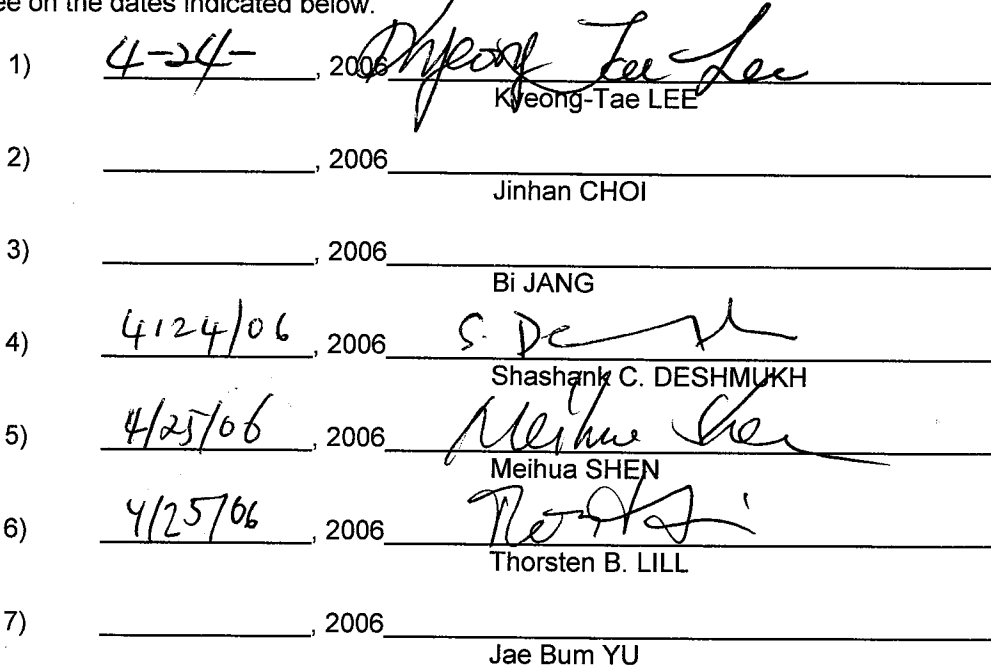 ee on the dates indicated below.
1) 4-24- , 2006 Kyeong Tae Lee
Kyeong-Tae LEE
2) , 2006
Jinhan CHOI
3) , 2006
Bi JANG
4) 4/24/06 , 2006 S. De
Shashank C. DESHMUKH
5) 4/25/06 , 2006 Meihua Shen
Meihua SHEN
6) 4/25/06 , 2006
Thorsten B. LILL
7) , 2006
Jae Bum YU